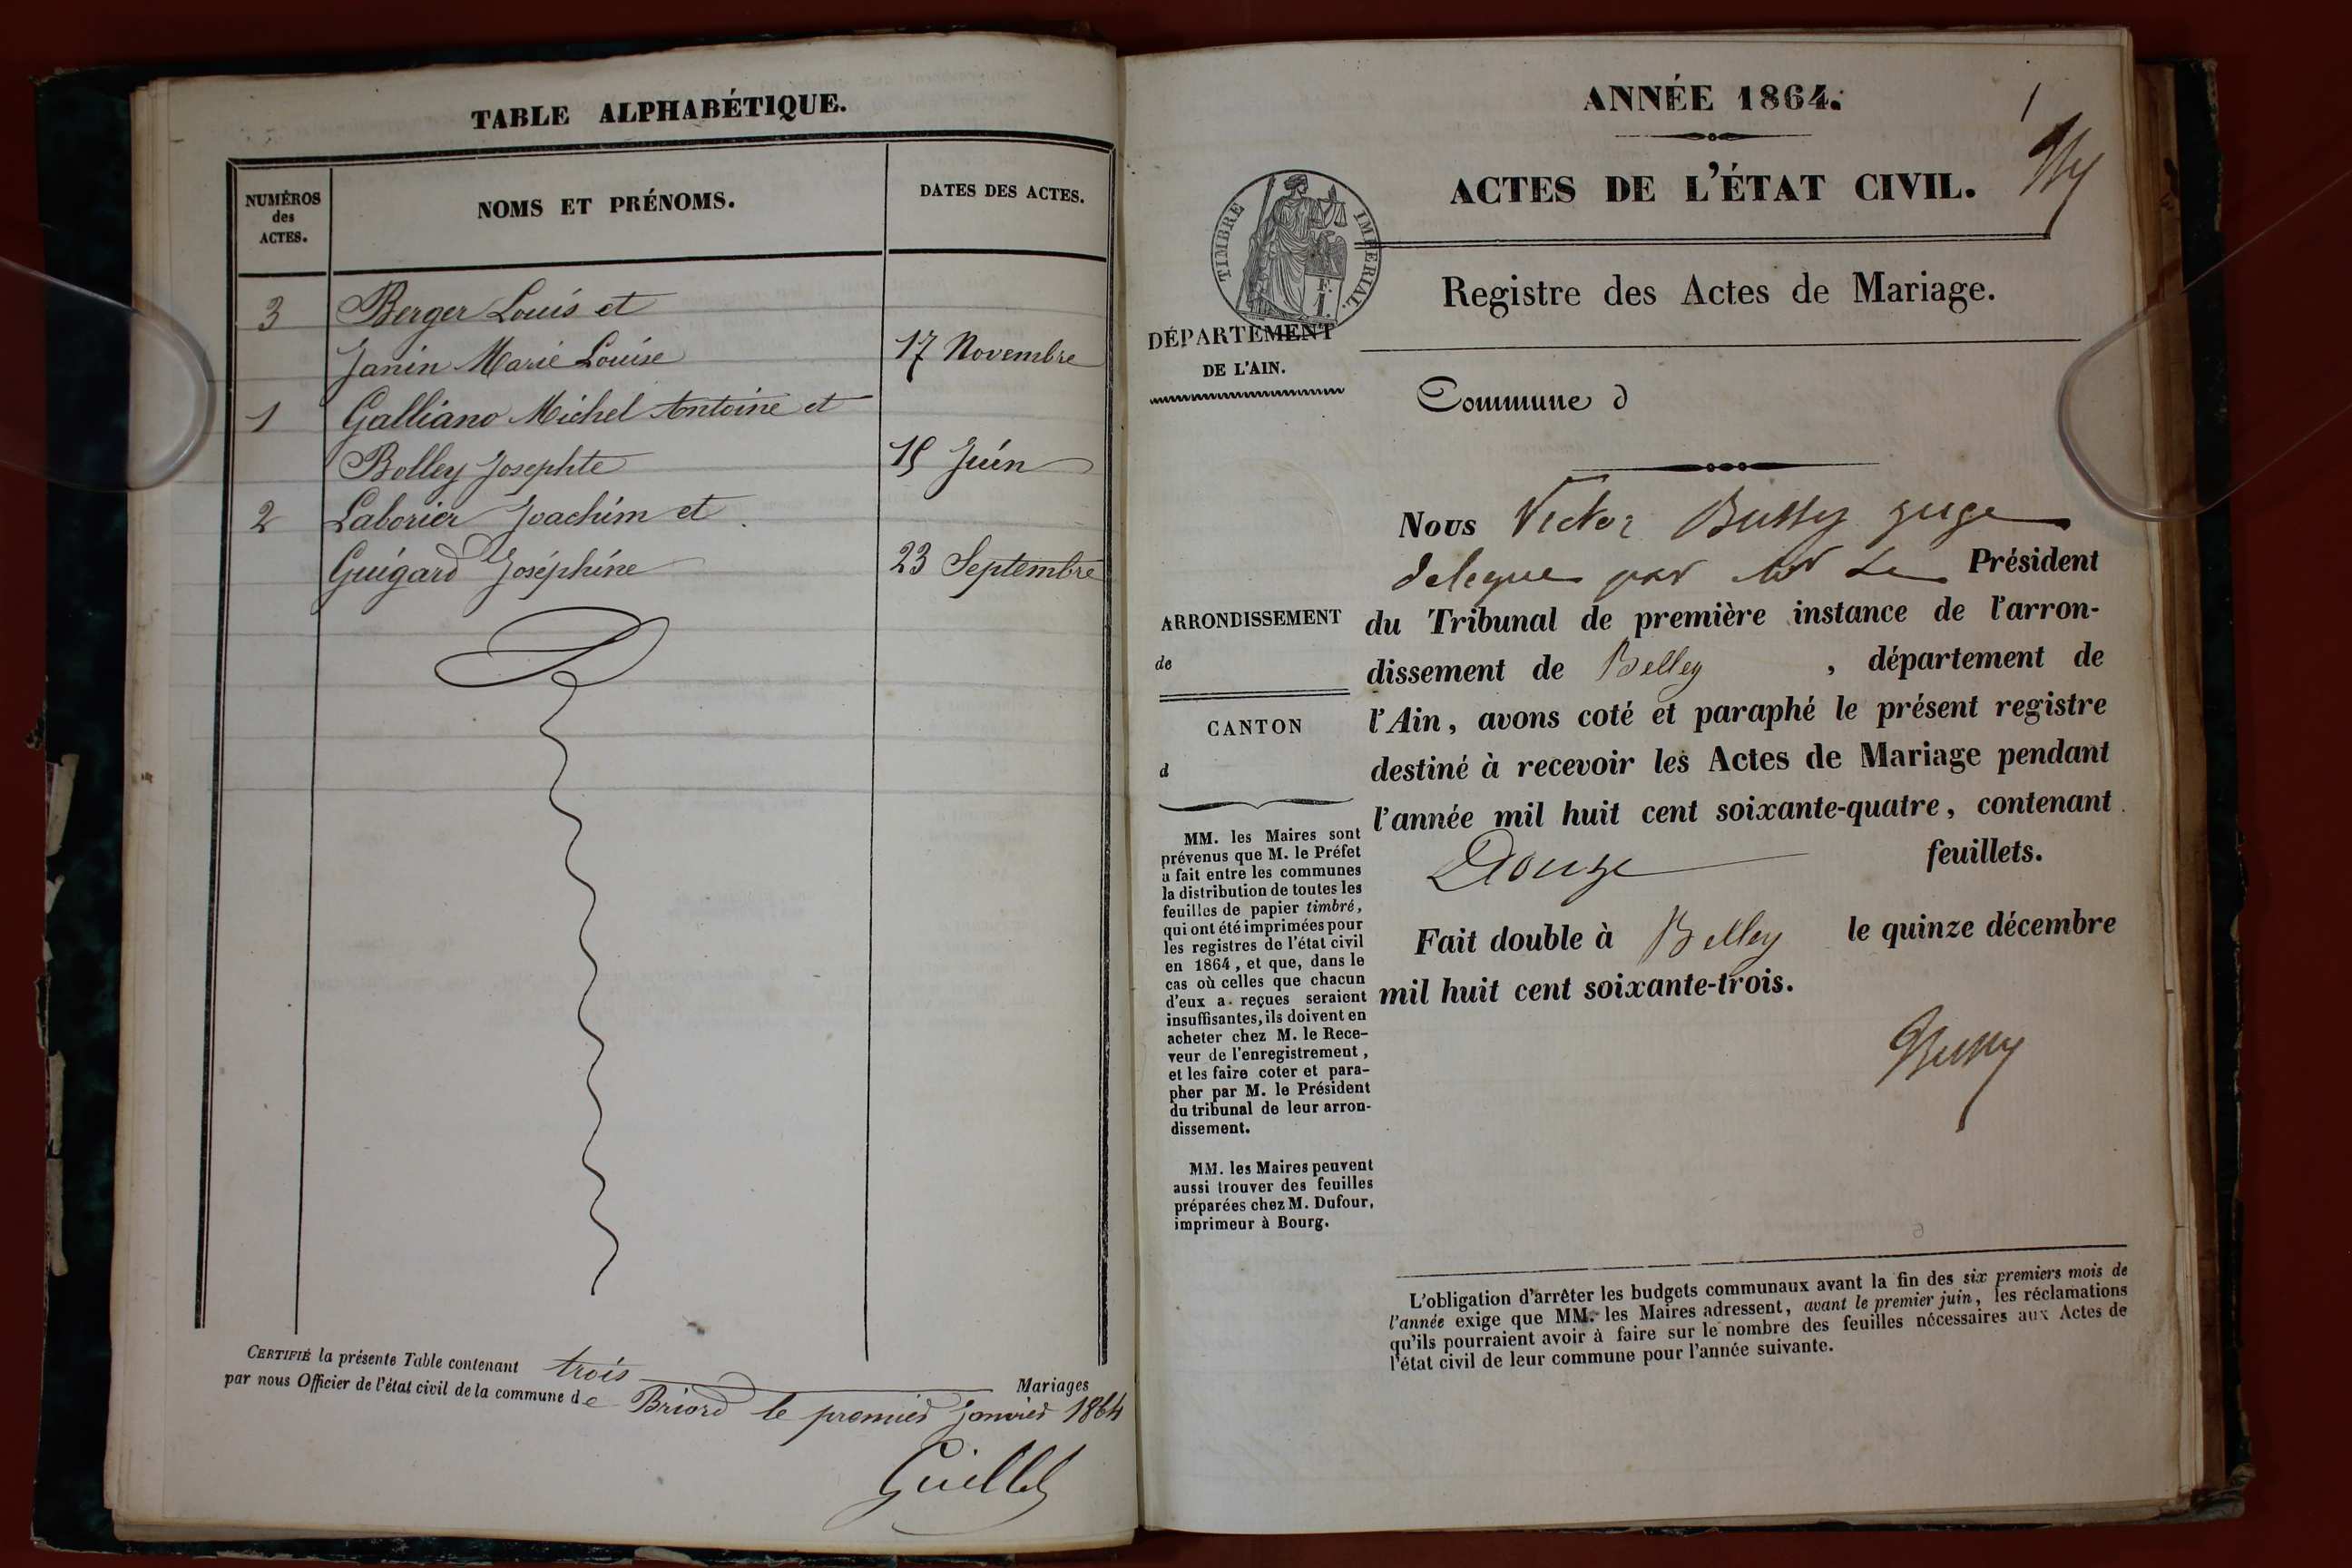 TABLE ALPHABÉTIQUE.
NUMÉROS
des
ACTES.
NOMS ET PRÉNOMS.
DATES DES ACTES.
3 Berger Louis et
Janin Marie Louise 17 Novembre
1 Galliano Michel Antoine et
Bolley Josephte 15 Juin
2 Laborier Joachim et
Guigard Joséphine 23 Septembre
CERTIFIÉ la présente Table contenant trois Mariages
par nous Officier de l'état civil de la commune de Briord le premier Janvier 1864
Guillet
1
ANNÉE 1864.
ACTES DE L'ÉTAT CIVIL.
TIMBRE IMPÉRIAL.
Registre des Actes de Mariage.
DÉPARTEMENT
DE L'AIN.
Commune d
Nous Victor Bussy juge
delegue par Mr Le Président
du Tribunal de première instance de l'arron-
dissement de Belley, département de
l'Ain, avons coté et paraphé le présent registre
destiné à recevoir les Actes de Mariage pendant
l'année mil huit cent soixante-quatre, contenant
Douze feuillets.
Fait double à Belley le quinze décembre
mil huit cent soixante-trois.
Bussy
ARRONDISSEMENT
de
CANTON
d
MM. les Maires sont
prévenus que M. le Préfet
a fait entre les communes
la distribution de toutes les
feuilles de papier timbré,
qui ont été imprimées pour
les registres de l'état civil
en 1864, et que, dans le
cas où celles que chacun
d'eux a reçues seraient
insuffisantes, ils doivent en
acheter chez M. le Rece-
veur de l'enregistrement,
et les faire coter et para-
pher par M. le Président
du tribunal de leur arron-
dissement.
MM. les Maires peuvent
aussi trouver des feuilles
préparées chez M. Dufour,
imprimeur à Bourg.
L'obligation d'arrêter les budgets communaux avant la fin des six premiers mois de
l'année exige que MM. les Maires adressent, avant le premier juin, les réclamations
qu'ils pourraient avoir à faire sur le nombre des feuilles nécessaires aux Actes de
l'état civil de leur commune pour l'année suivante.